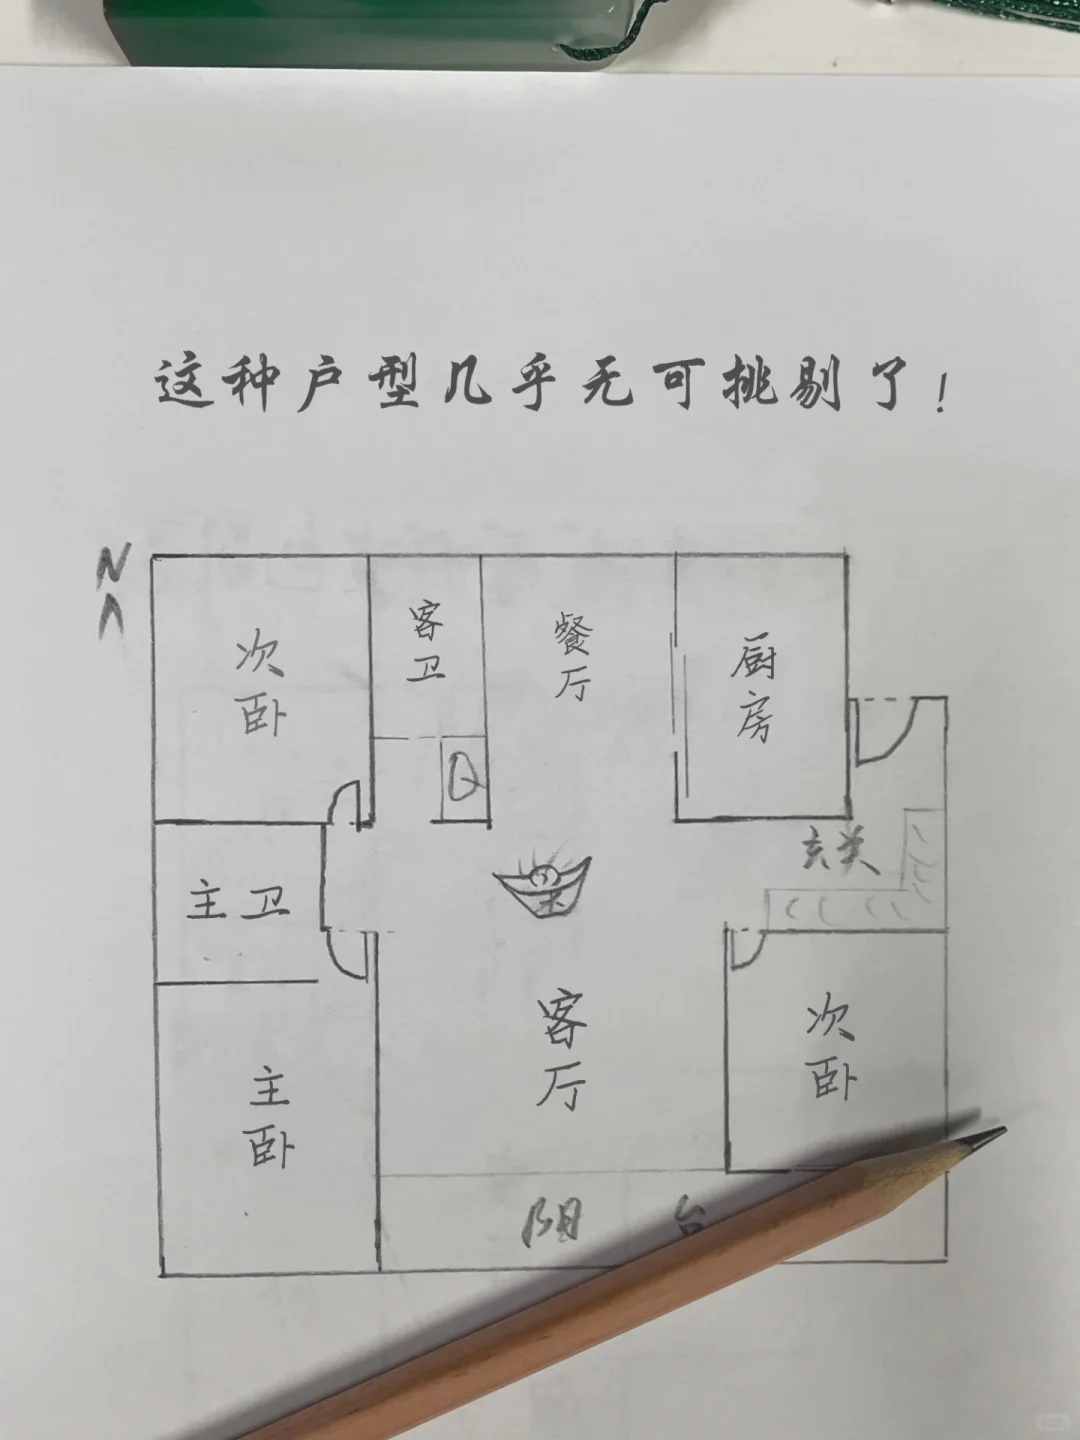 这种户型几乎无可挑剔了!
N
次卧
客卫
餐厅
厨房
Q
玄关
主卫
客厅
次卧
主卧
阳台